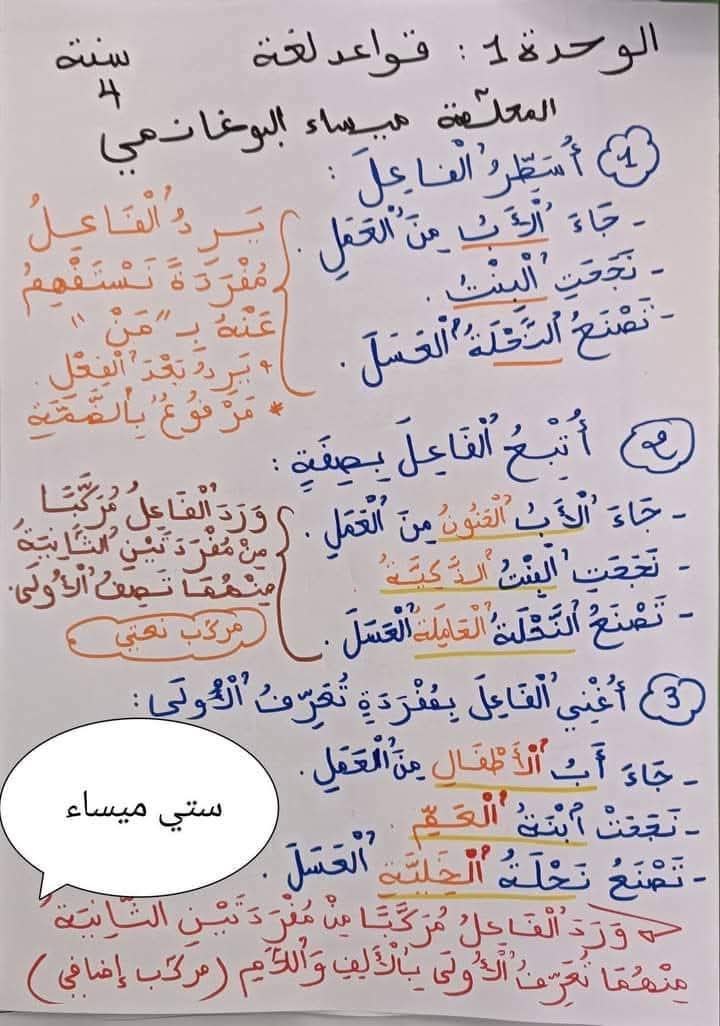 الوحدة 1 : قواعد لغة سنة 4
المعلّمة ميساء البوغانمي
1 أُسَطِّرُ الْفاعِلَ :
- جَاءَ الْأَبُ مِنَ الْعَمَلِ .
- نَجَحَتِ الْبِنْتُ .
- تَصْنَعُ النَّحْلَةُ الْعَسَلَ .
يَرِدُ الْفَاعِلُ
مُفْرَدَةً نَسْتَفْهِمُ
عَنْهُ بِـ "مَنْ"
+ يَرِدُ بَعْدَ الْفِعْلِ .
* مَرْفُوعٌ بِالضَّمَّةِ
2 أُتْبِعُ الْفَاعِلَ بِصِفَةٍ :
- جَاءَ الْأَبُ الْحَنُونُ مِنَ الْعَمَلِ .
- نَجَحَتِ الْبِنْتُ الذَّكِيَّةُ
- تَصْنَعُ النَّحْلَةُ الْعَامِلَةُ الْعَسَلَ .
وَرَدَ الْفَاعِلُ مُرَكَّبًا
مِنْ مُفْرَدَتَيْنِ الثَّانِيَةُ
مِنْهُمَا تَصِفُ الْأُولَى .
مركّب نعتي
3 أُغْنِي الْفَاعِلَ بِمُفْرَدَةٍ تُعَرِّفُ الْأُولَى :
- جَاءَ أَبُ الْأَطْفَالِ مِنَ الْعَمَلِ .
- نَجَحَتْ ابْنَةُ الْعَمِّ .
- تَصْنَعُ نَحْلَةُ الْخَلِيَّةِ الْعَسَلَ .
ستي ميساء
وَرَدَ الْفَاعِلُ مُرَكَّبًا مِنْ مُفْرَدَتَيْنِ الثَّانِيَةُ
مِنْهُمَا تُعَرِّفُ الْأُولَى بِالْأَلِفِ وَاللَّامِ (مركّب إضافي)